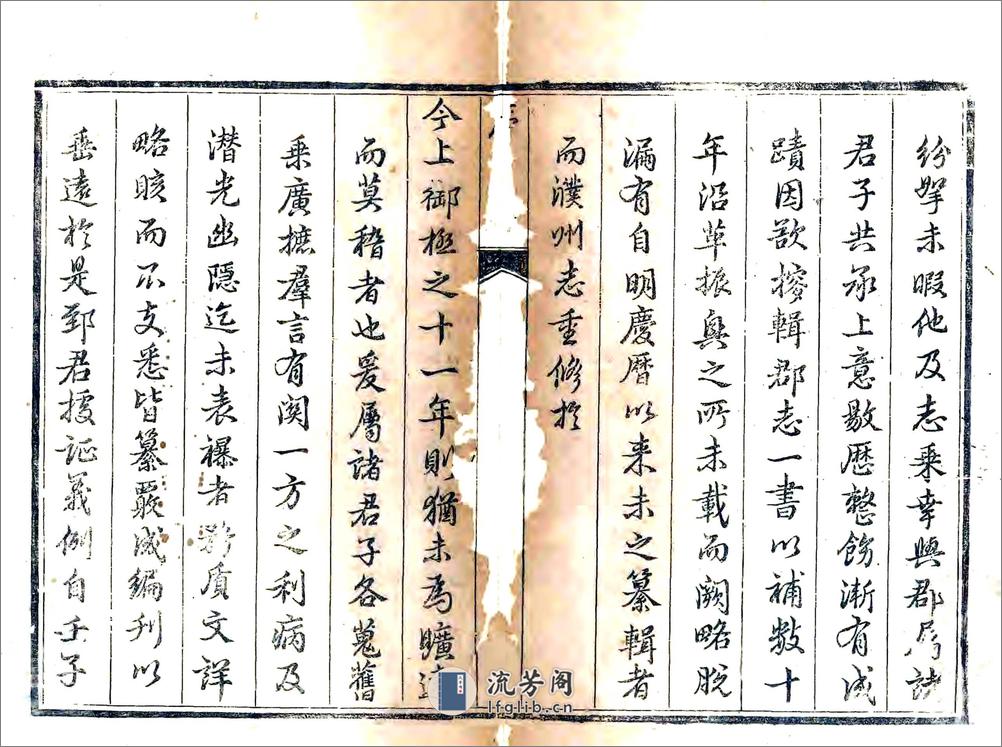 紛拏未暇他及志乘幸與郡屬諸
君子共承上意敭歷整飭漸有成
蹟因欲擬輯郡志一書以補數十
年沿革振興之所未載而闕略脫
漏有自明慶曆以來未之纂輯者
而濮州志重修於
序
今上御極之十一年則猶未為曠
而莫稽者也爰屬諸君子各蒐舊
乘廣摭羣言有關一方之利病及
潛光幽隱迄未表襮者矜質文詳
略賅而不支悉皆纂覈成編刊以
垂遠於是郅君援證義例自壬子
流芳阁
lfglib.cn